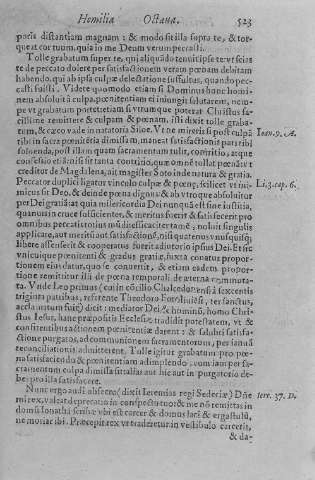 Homilia Octaua. 523
poris distantiam magnam: & modo sit illa supra te, & tor-
queat cor tuum, quia in me Deum verum peccasti.
Tolle grabatum super te, qui aliquādo tenuit ipse te vt scias
te de peccato dolere per satisfactionem veram pœnam debitam
habendo, qui ab ipsa culpæ delectatione suffultus, quando pec-
casti fuisti. Videte quomodo etiam si Dominus hunc homi-
nem absoluit à culpa, pœnitentiam ei iniungit salutarem, nem-
pe vt grabatum portet etiam si vtrumque poterat Christus fa-
cillime remittere & culpam & pœnam, isti dixit tolle graba-
tum, & cæco vade in natatoria Siloe. Vt ne mireris si post culpā Ioan. 9. A.
tibi in sacra pœnitētia dimissam, maneat satisfactionis pars tibi
soluenda, post illam quam sacramentum tulit, contritio, atque
confessio
creditor de Magdalena, ait magister Soto in de natura & gratia.
Peccator duplici ligatur vinculo culpæ & pœnę, scilicet vt ini- Li. 3. cap. 6.
micus sit Deo, & deinde pœna dignus & ab vtroque absoluitur
per Dei gratiā: at quia misericordia Dei nunquā est sine iustitia,
quanuis in cruce sufficienter, & meritus fuerit & satisfecerit pro
omnibus peccatis totius mūdi efficaciter tamē, noluit singulis
applicare, aut meritū aut satisfactionē, nisi quatenus vnusquisq;
libere assenserit & cooperatus fuerit adiutorio ipsius Dei. Et sic
vnicuique pœnitenti & gradus gratiæ, iuxta conatus propor-
tionem eius datur, quo se conuertit, & etiam eadem propor-
tione remittitur illi de pœna temporali de æterna commuta-
ta. Vnde Leo primus (cui in cōcilio Chalcedonensi sexcentis
triginta patribus, referente Theodoro Foroliuiēsi, ter sanctus,
acclamatum fuit) dixit: mediator Dei & hominū, homo Chri-
stus Iesus, hanc præpositis Ecclesiæ tradidit potestatem, vt &
confitentibus actionem pœnitentiæ darent: & salubri satisfa-
ctione purgatos, ad communionem sacramentorum, per ianuā
reconciliationis admitterent. Tolle igitur grabatum pro pœ-
na satisfaciendo & pœnitentiam adimplendo, cum iam per sa-
cramentum culpa dimissa sit alias aut hic aut in purgatorio de-
bes pro illa satisfacere.
Nunc ergo audi obsecro (dixit Ieremias regi Sedeciæ) Dñe Iere. 37. D.
mi rex, valeat deprecatio in conspectu tuo: & me nō remittas in
domū Ionathæ scribæ vbi est carcer & domus laci & ergastulū,
ne moriar ibi. Præcepit rex vt traderetur in vestibulo carceris,
& da-